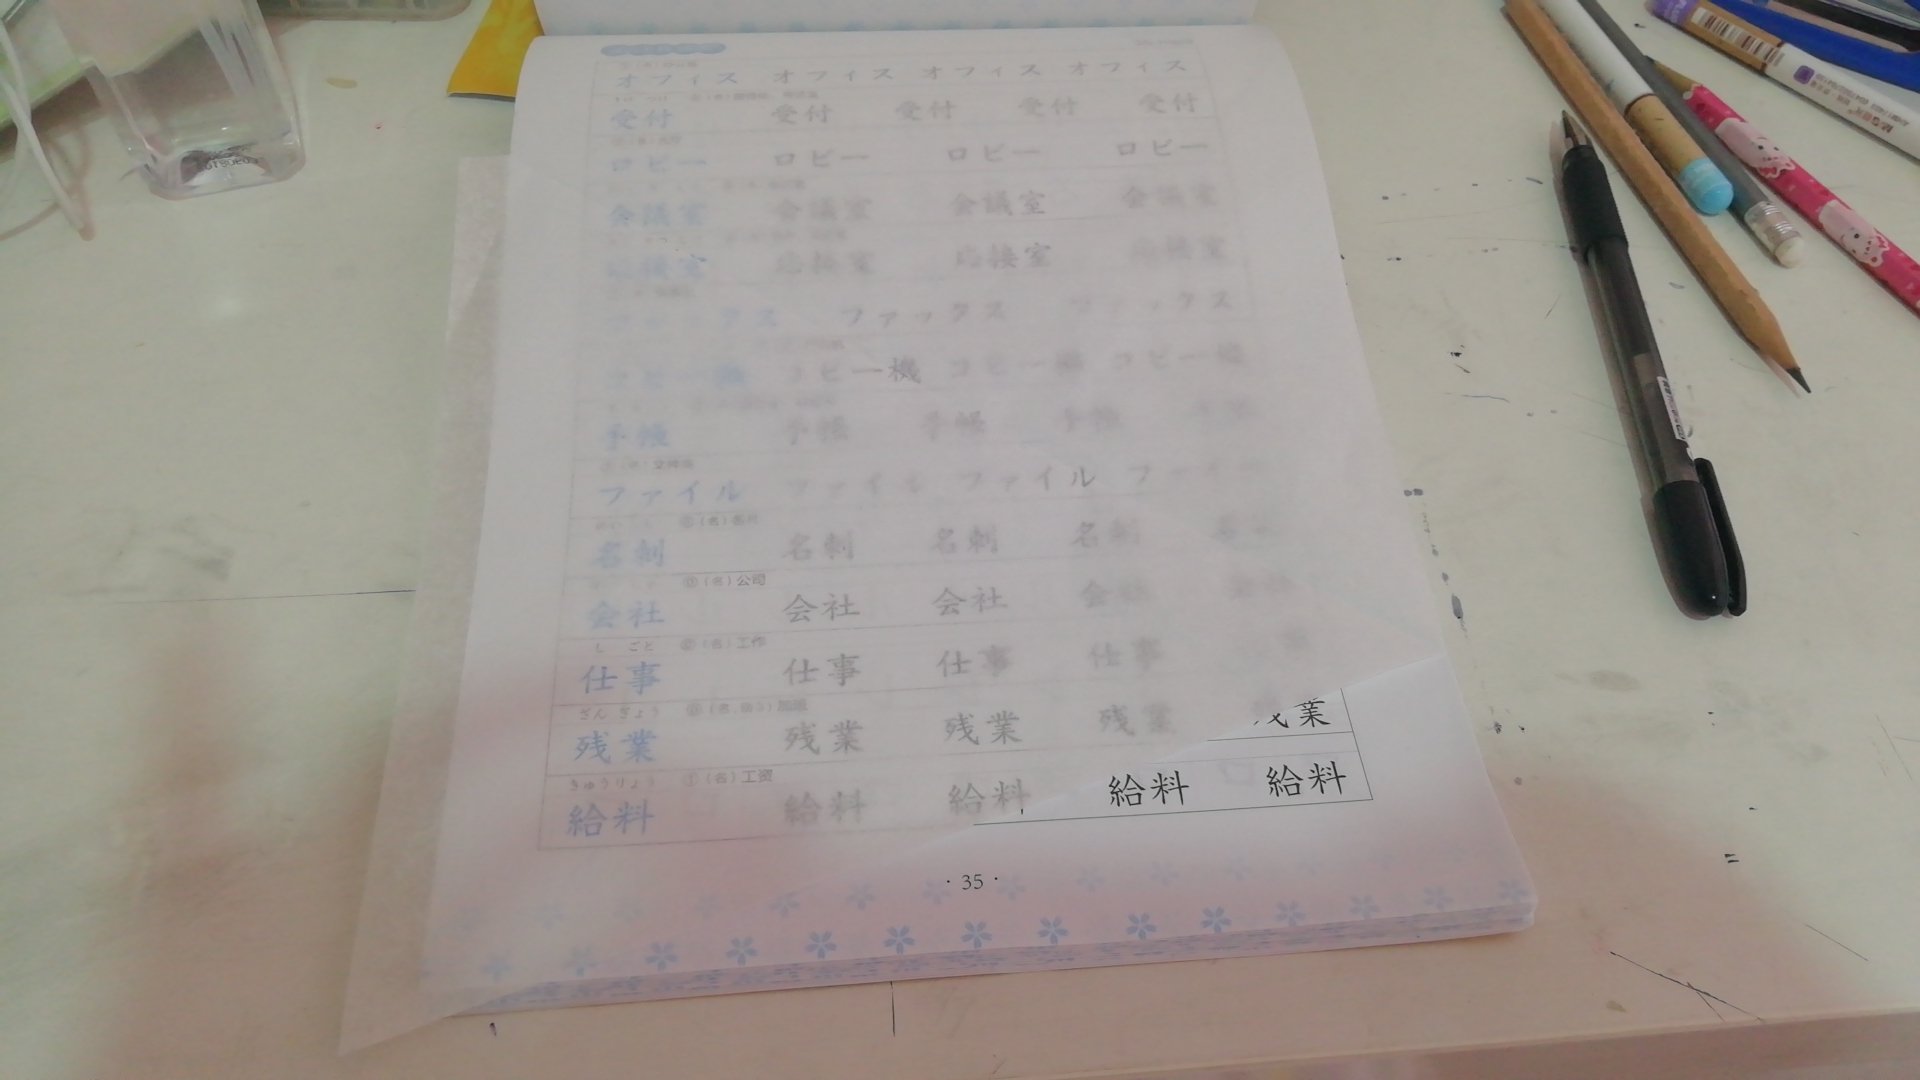 オフィス オフィス オフィス オフィス
受付 受付 受付 受付 受付
ロビー ロビー ロビー ロビー
会議室 会議室 会議室 会議室
応接室 応接室 応接室 応接室
ファックス ファックス ファックス
コピー機 コピー機 コピー機 コピー機
手帳 手帳 手帳 手帳
ファイル ファイル ファイル
名刺 名刺 名刺 名刺
⓪(名)公司
会社 会社 会社 会社 会社
しごと ⓪(名)工作
仕事 仕事 仕事 仕事
ざんぎょう
残業 残業 残業 残業 残業
きゅうりょう ①(名)工资
給料 給料 給料 給料 給料
· 35 ·